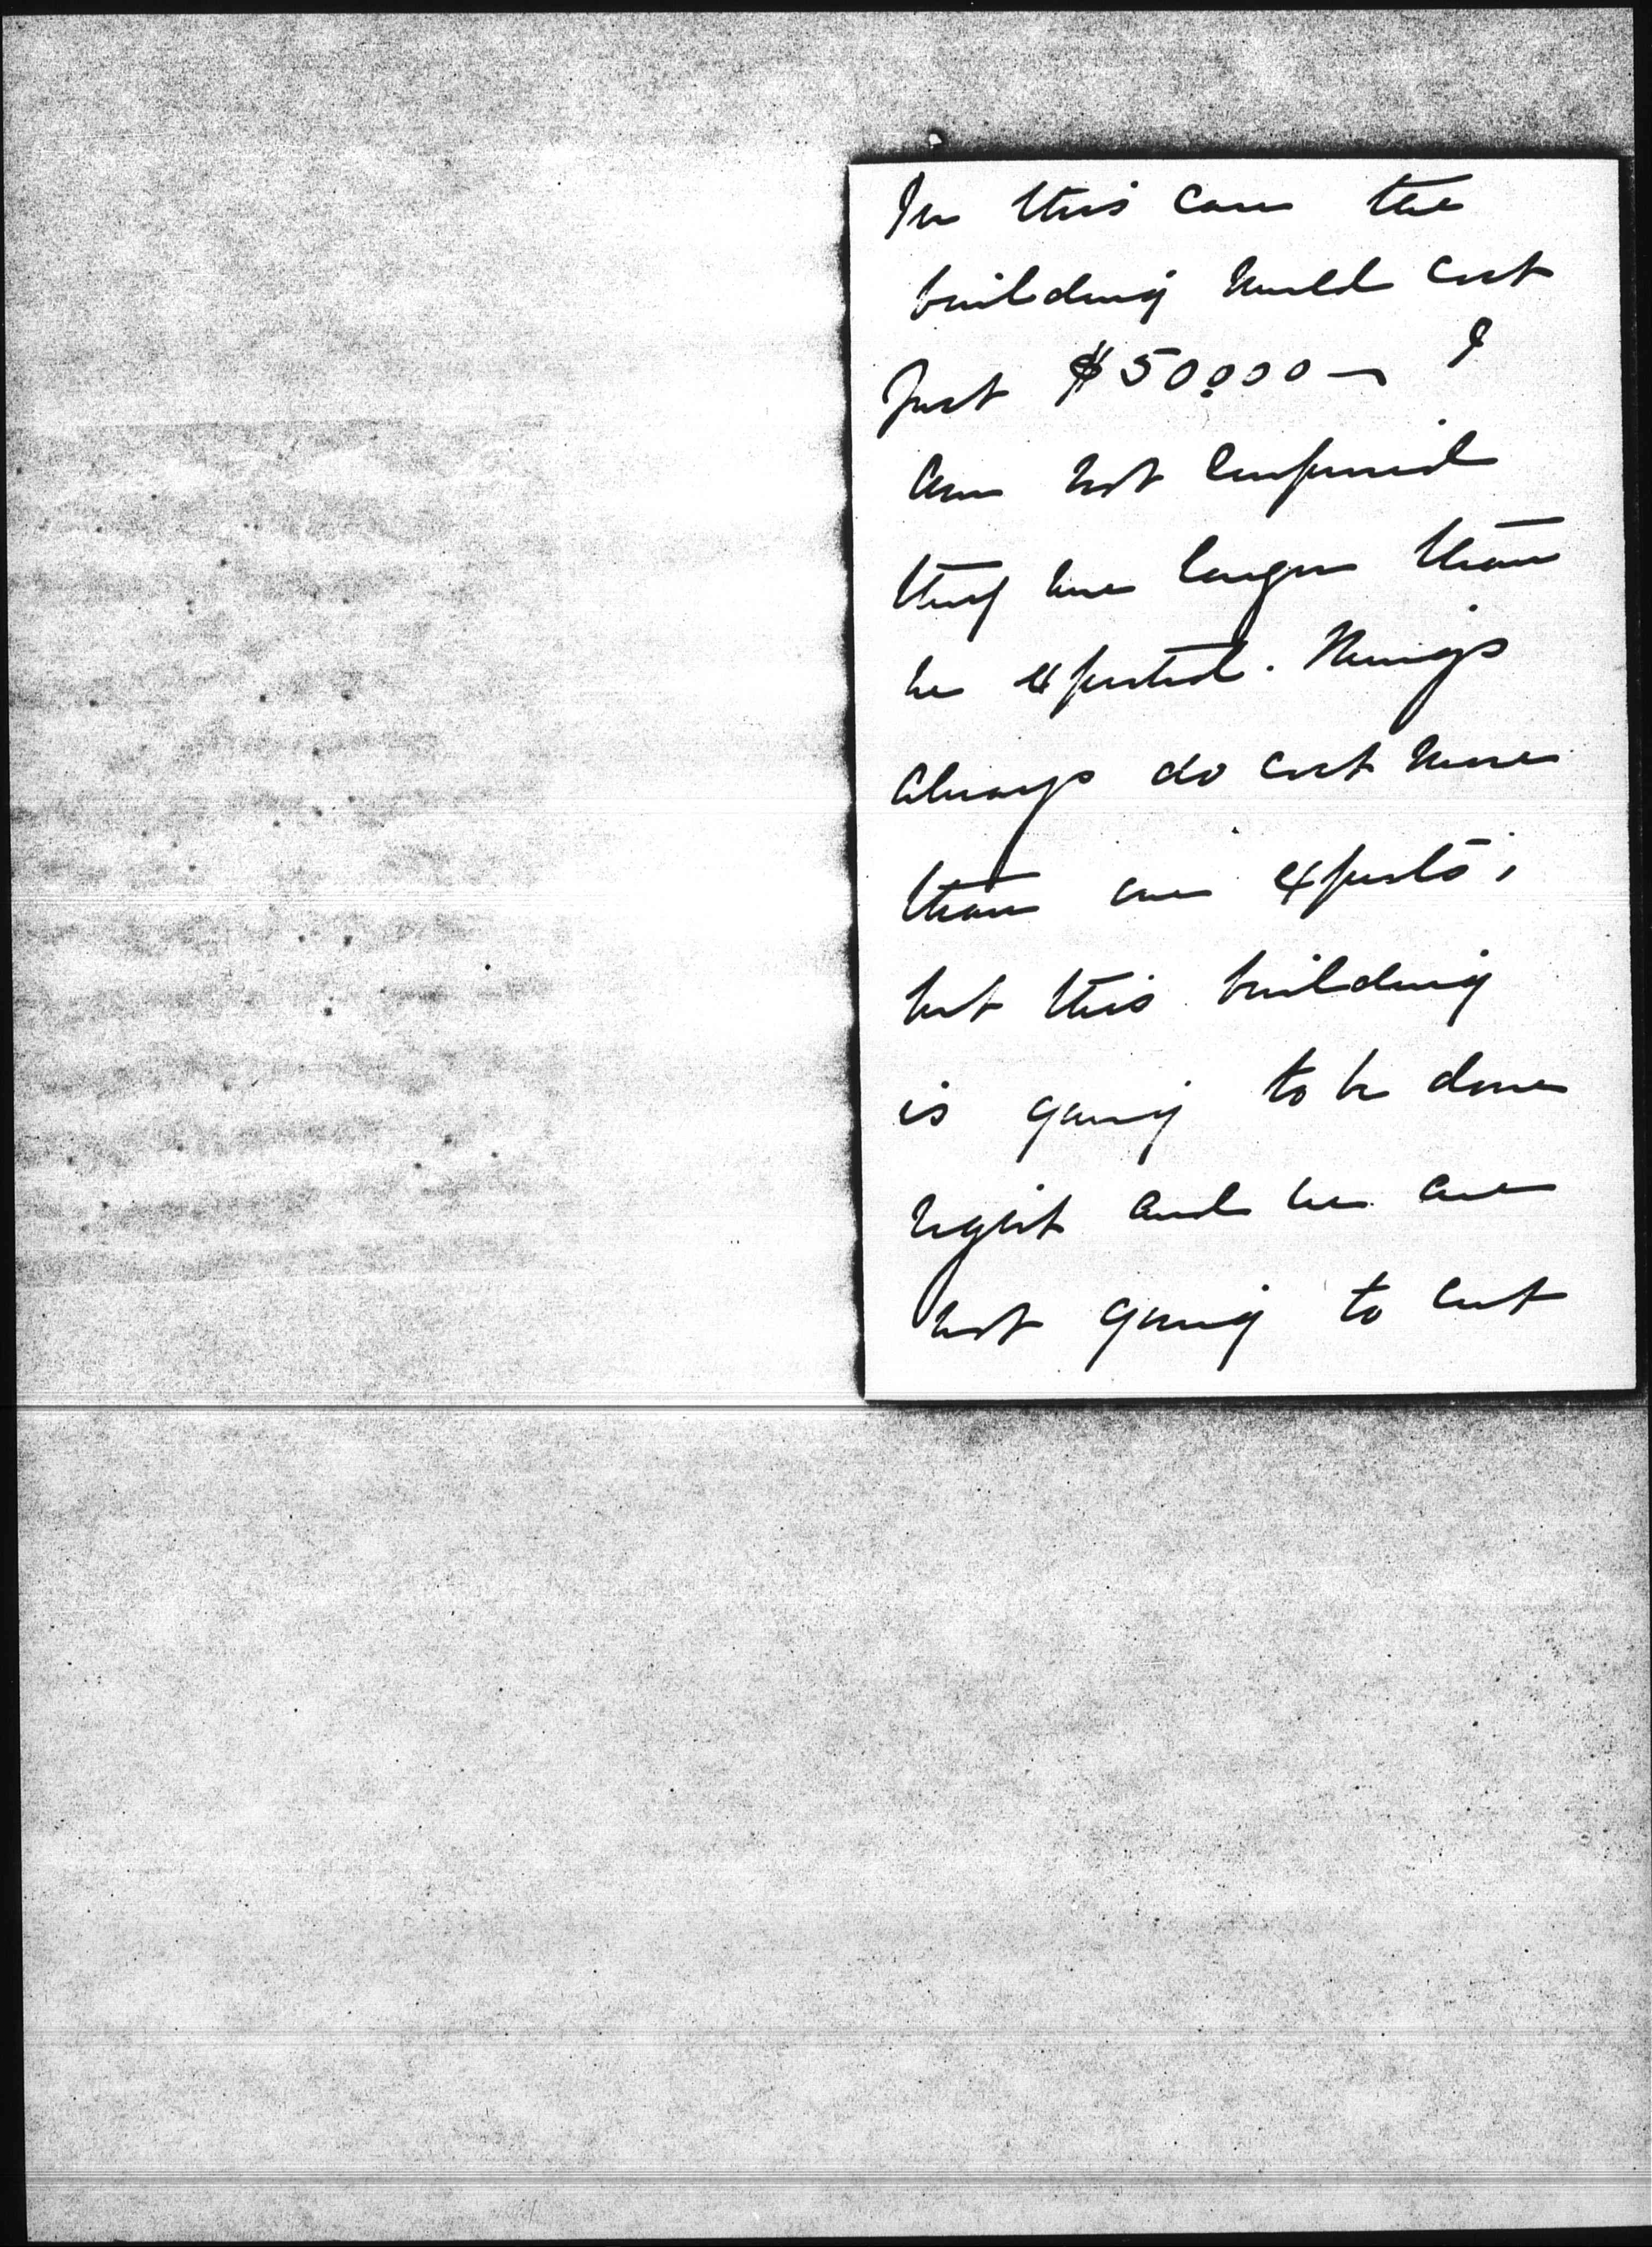 In this case the
building would cost
just $50000 — I
am not surprised
they are larger than
he expected. Things
always do cost more
than one expects,
but this building
is going to be done
right and we are
not going to cut